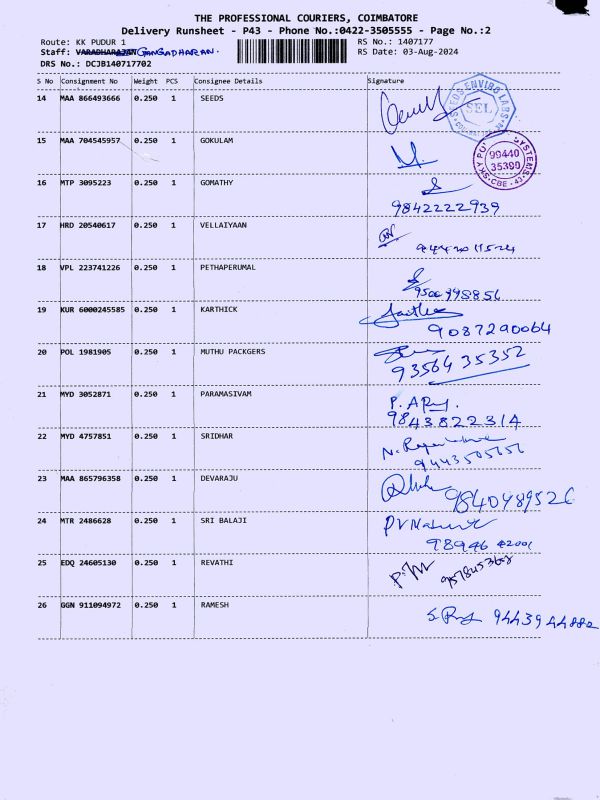 THE PROFESSIONAL COURIERS, COIMBATORE
Delivery Runsheet - P43 - Phone No.:0422-3505555 - Page No.:2
Route: KK PUDUR 1 RS No.: 1407177
Staff: VARADHARAJAN GANGADHARAN. RS Date: 03-Aug-2024
DRS No.: DCJB140717702
S No Consignment No Weight PCS Consignee Details Signature
14 MAA 866493666 0.250 1 SEEDS
SEEDS ENVIRO LABS
SEL
15 MAA 704545957 0.250 1 GOKULAM
SYSTEMS
99440
35380
SKY CBE-43
16 MTP 3095223 0.250 1 GOMATHY
9842222939
17 HRD 20540617 0.250 1 VELLAIYAAN
18 VPL 223741226 0.250 1 PETHAPERUMAL
19 KUR 6000245585 0.250 1 KARTHICK
9087290064
20 POL 1981905 0.250 1 MUTHU PACKGERS
93564 35352
21 MYD 3052871 0.250 1 PARAMASIVAM
9843822314
22 MYD 4757851 0.250 1 SRIDHAR
23 MAA 865796358 0.250 1 DEVARAJU
9840489526
24 MTR 2486628 0.250 1 SRI BALAJI
98946 42001
25 EDQ 24605130 0.250 1 REVATHI
26 GGN 911094972 0.250 1 RAMESH
9443944882